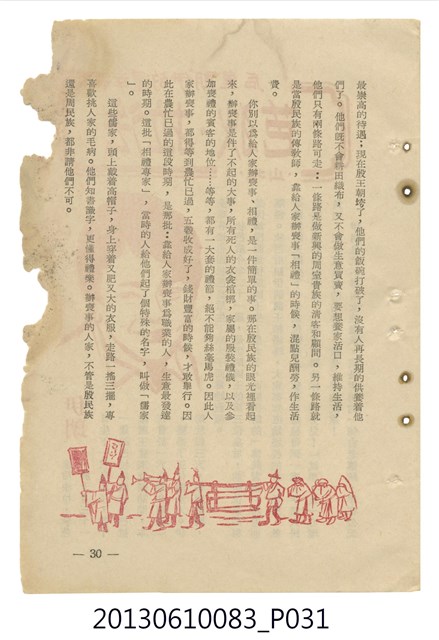 最崇高的待遇；現在殷王朝垮了，他們的飯碗打破了，沒有人再長期的供養着他
們了。他們既不會耕田織布，又不會做生意買賣，要想養家活口，維持生活，
他們只有兩條路可走：一條路是做新興的周室貴族的清客和顧問。另一條路就
是當殷民族的傳教師，靠給人家辦喪事「相禮」的時候，混點兒酬勞，作生活
費。
你別以為給人家辦喪事、相禮，是一件簡單的事。那在殷民族的眼光裡看起
來，辦喪事是件了不起的大事，所有死人的衣衾棺槨，家屬的服裝禮儀，以及參
加喪禮的賓客的地位……等等，都有一大套的禮節，絕不能夠絲毫馬虎。因此人
家辦喪事，都得等到農忙已過，五穀收成好了，錢財豐富的時候，才敢舉行。因
此在農忙已過的這段時期，是那批：靠給人家辦喪事為職業的人，生意最發達
的時期。這批「相禮專家」，當時的人給他們起了個特殊的名字，叫做「儒家
」。
這些儒家，頭上戴着高帽子，身上穿着又肥又大的衣服，走路一搖三擺，專
喜歡挑人家的毛病。他們知書識字，更懂得禮樂。辦喪事的人家，不管是殷民族
還是周民族，都非請他們不可。
— 30 —
20130610083_P031